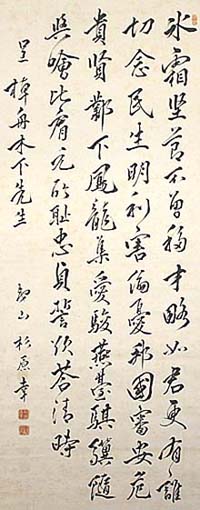 氷霜堅節不曽移才略如君更有誰
切念民生明利害偏憂邦國審安危
貴賢鄴下鳳龍集愛駿燕臺騏驥隨
與噲比肩元所恥忠貞誓欲答清時
呈梓舟木下先生
山杉原幸